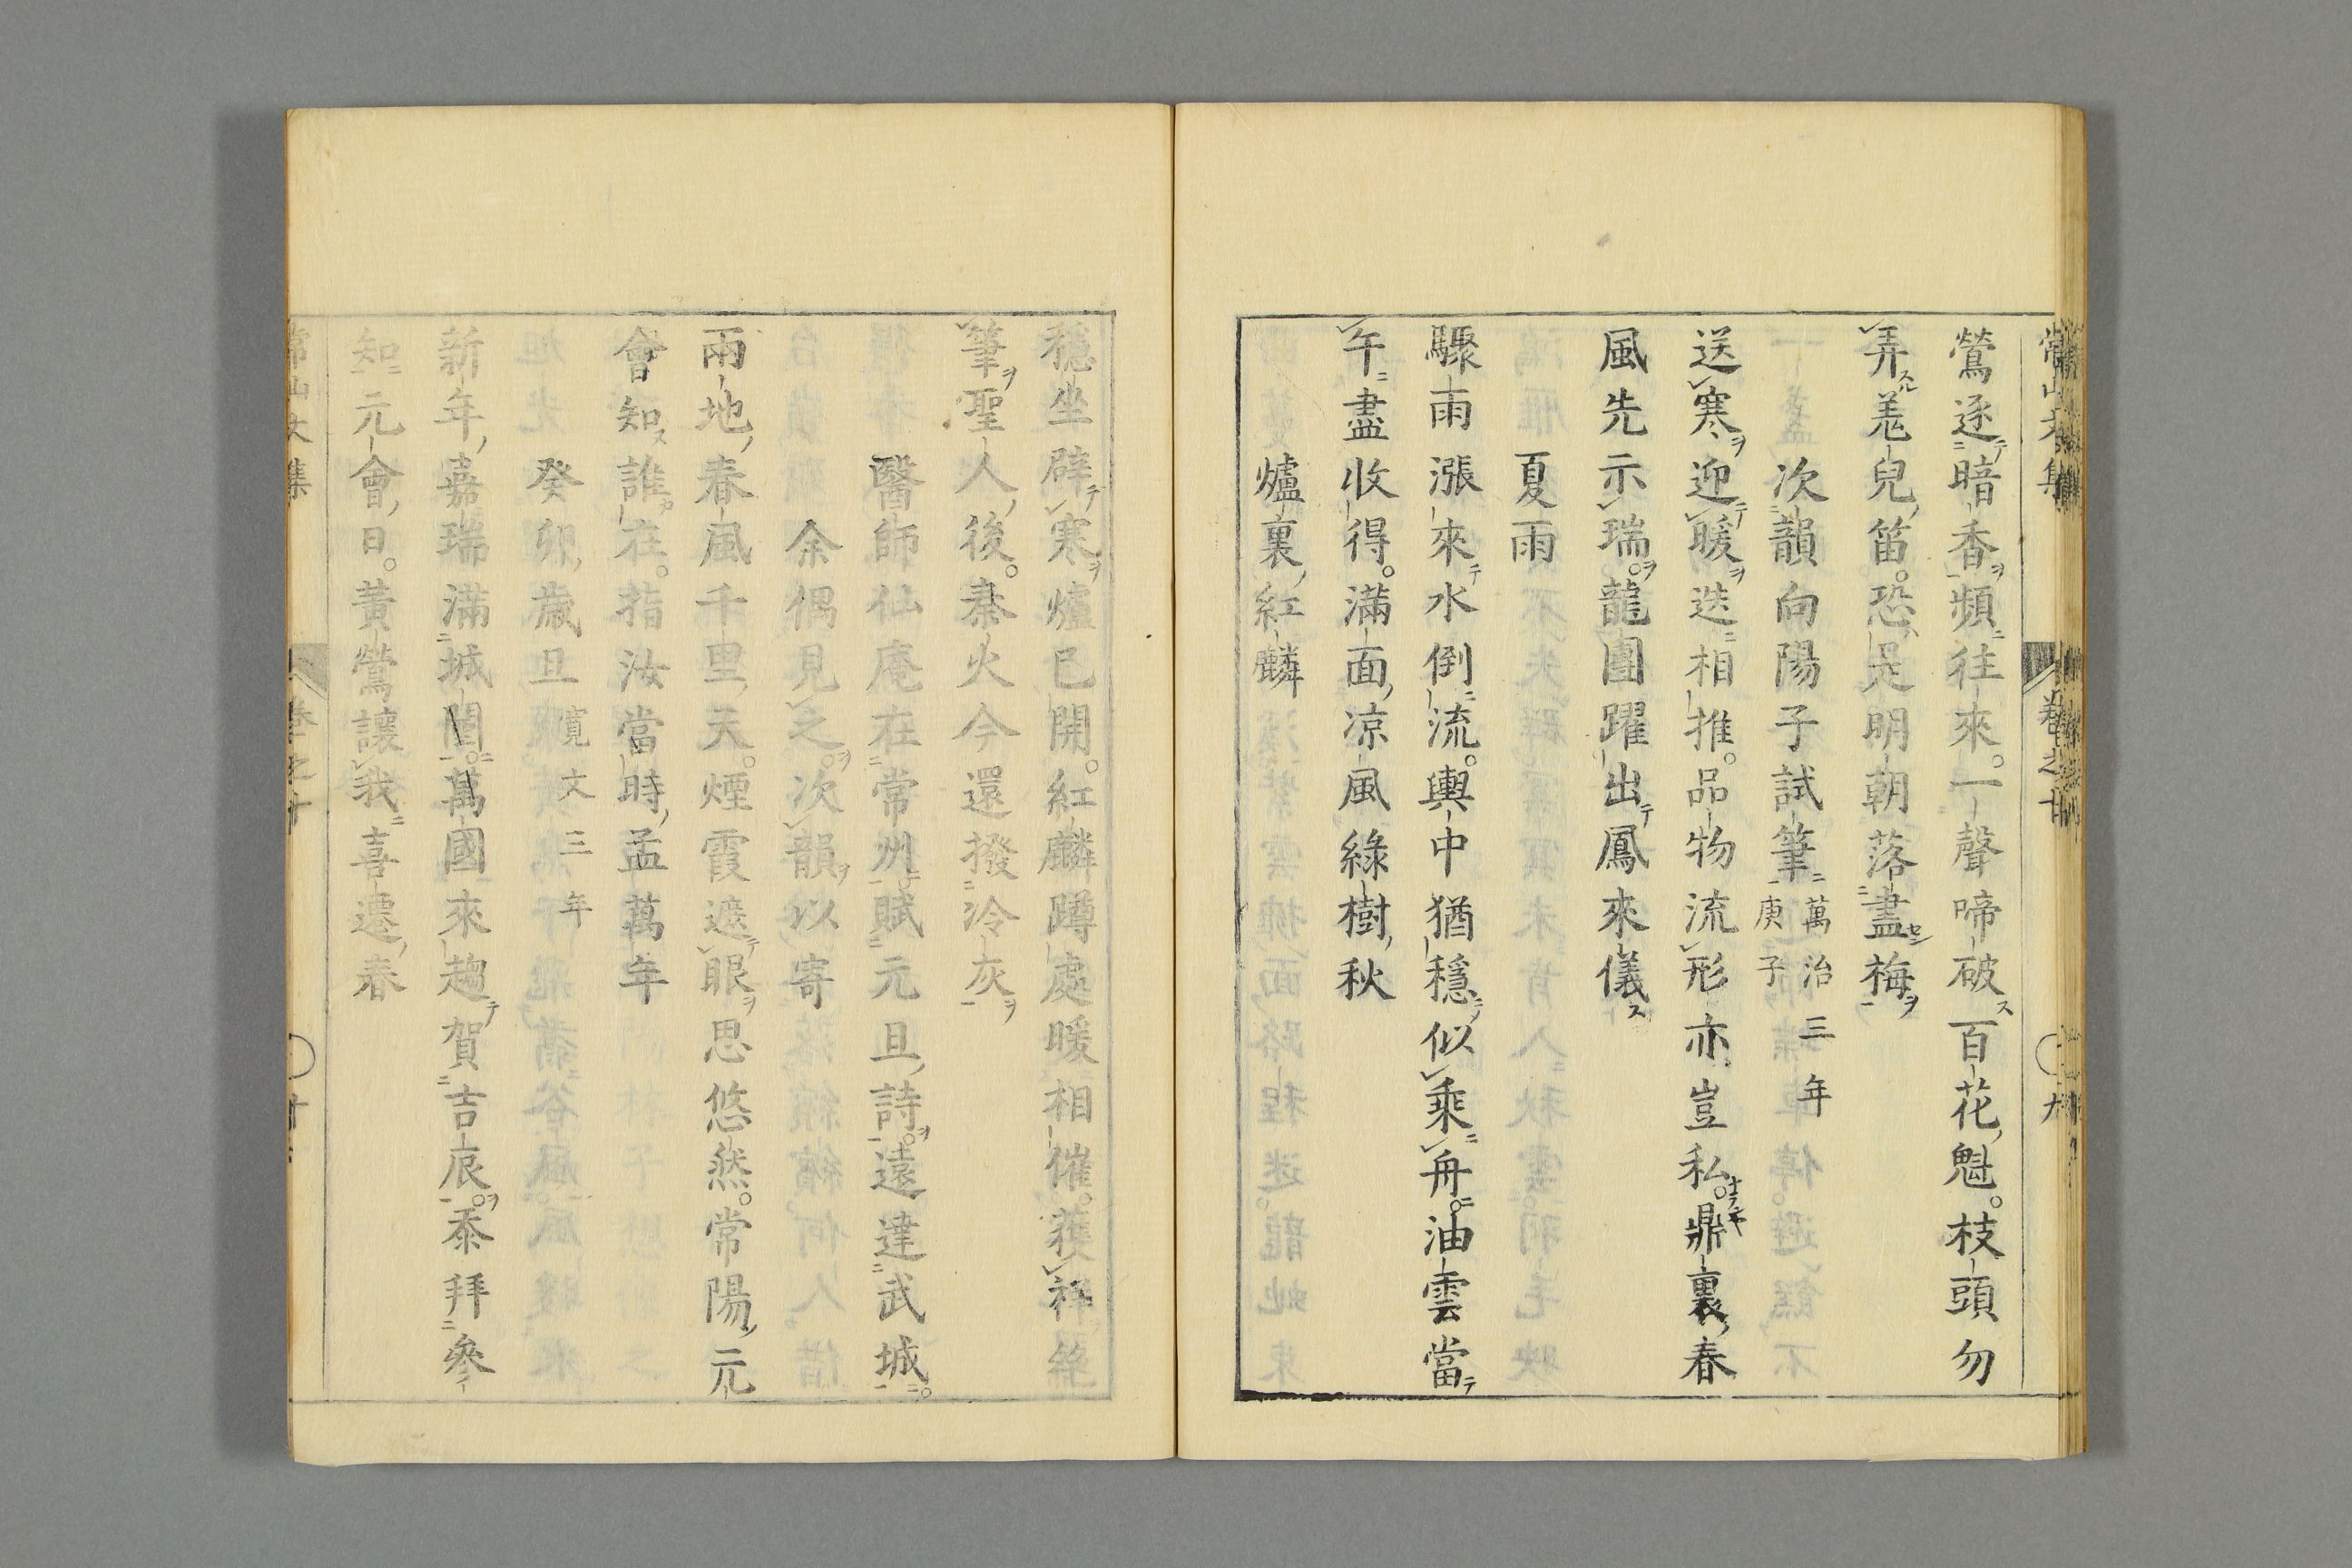 鶯逐暗香頻往來。一聲啼破百花魁。枝頭勿
弄羗兒笛。恐是明朝落盡梅
次韻向陽子試筆 萬治三年庚子
送寒迎暖迭相推。品物流形亦豈私。鼎裏春
風先示瑞。龍團躍出鳳來儀
夏雨
驟雨漲來水倒流。輿中猶穩似乘舟。油雲當
午盡收得。滿面凉風綠樹秋
爐裏紅麟
穩坐辟寒爐已開。紅麟蹲處暖相催。獲祥
筆聖人後。秦火今還撥冷灰
醫師仙庵在常州賦元旦詩。遠達武城。
余偶見之。次韻以寄
兩地春風千里天。煙霞遮眼思悠然。常陽元
會知誰在。指汝當時孟萬年
癸卯歲旦 寬文三年
新年嘉瑞滿城闉。萬國來趨賀吉辰。忝拜參
知元會日。黃鶯讓我喜遷春